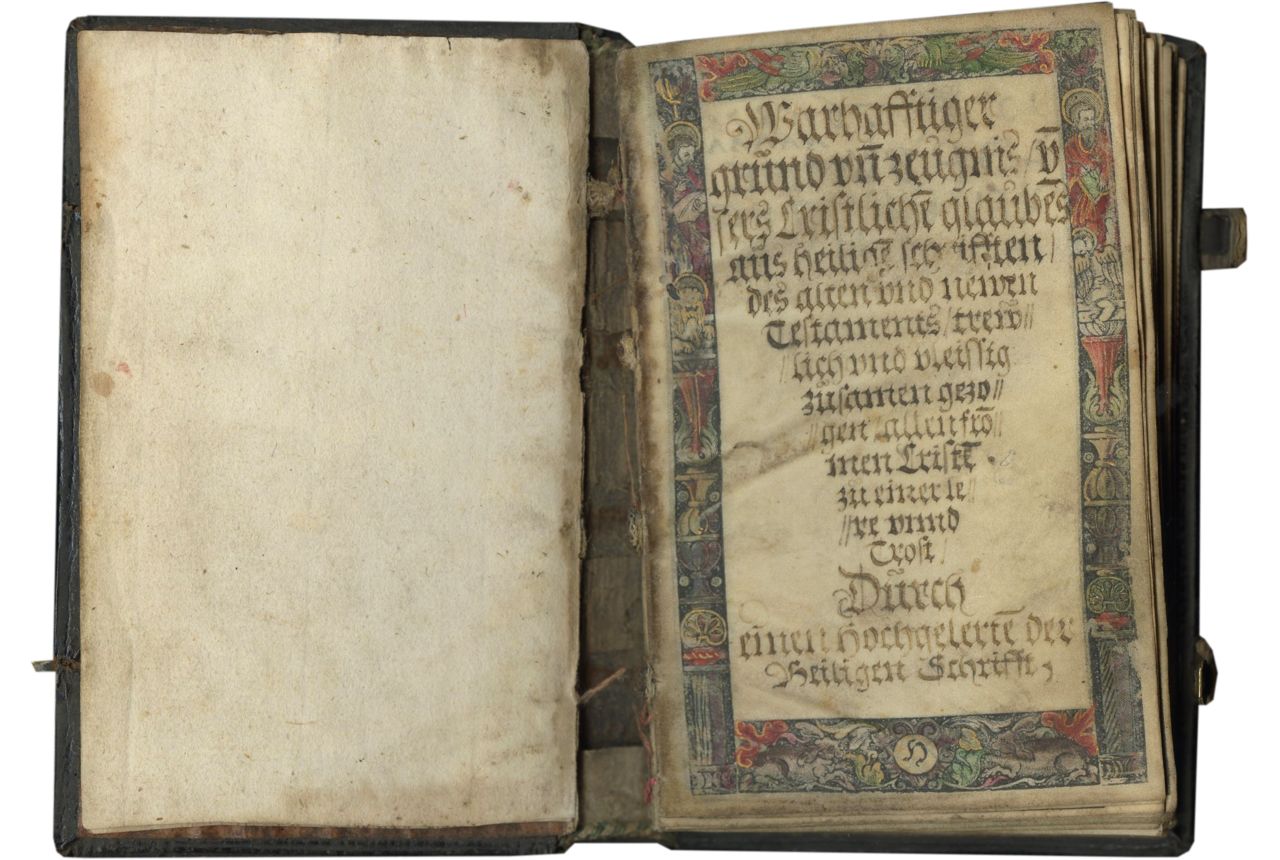 Warhafftiger
grund vn̄ zeugnis / v̄
sers Cristlichē glaubēs
aus heiligē schrifften /
des alten vnd newen
Testaments / trew //
// lich vnd vleissig
zůsamen gezo //
// gen / allen frō //
men Cristē .
zu einer le //
// re vnnd
Trost /
Durch
einen hochgelertē der
Heiligen Schrifft ,